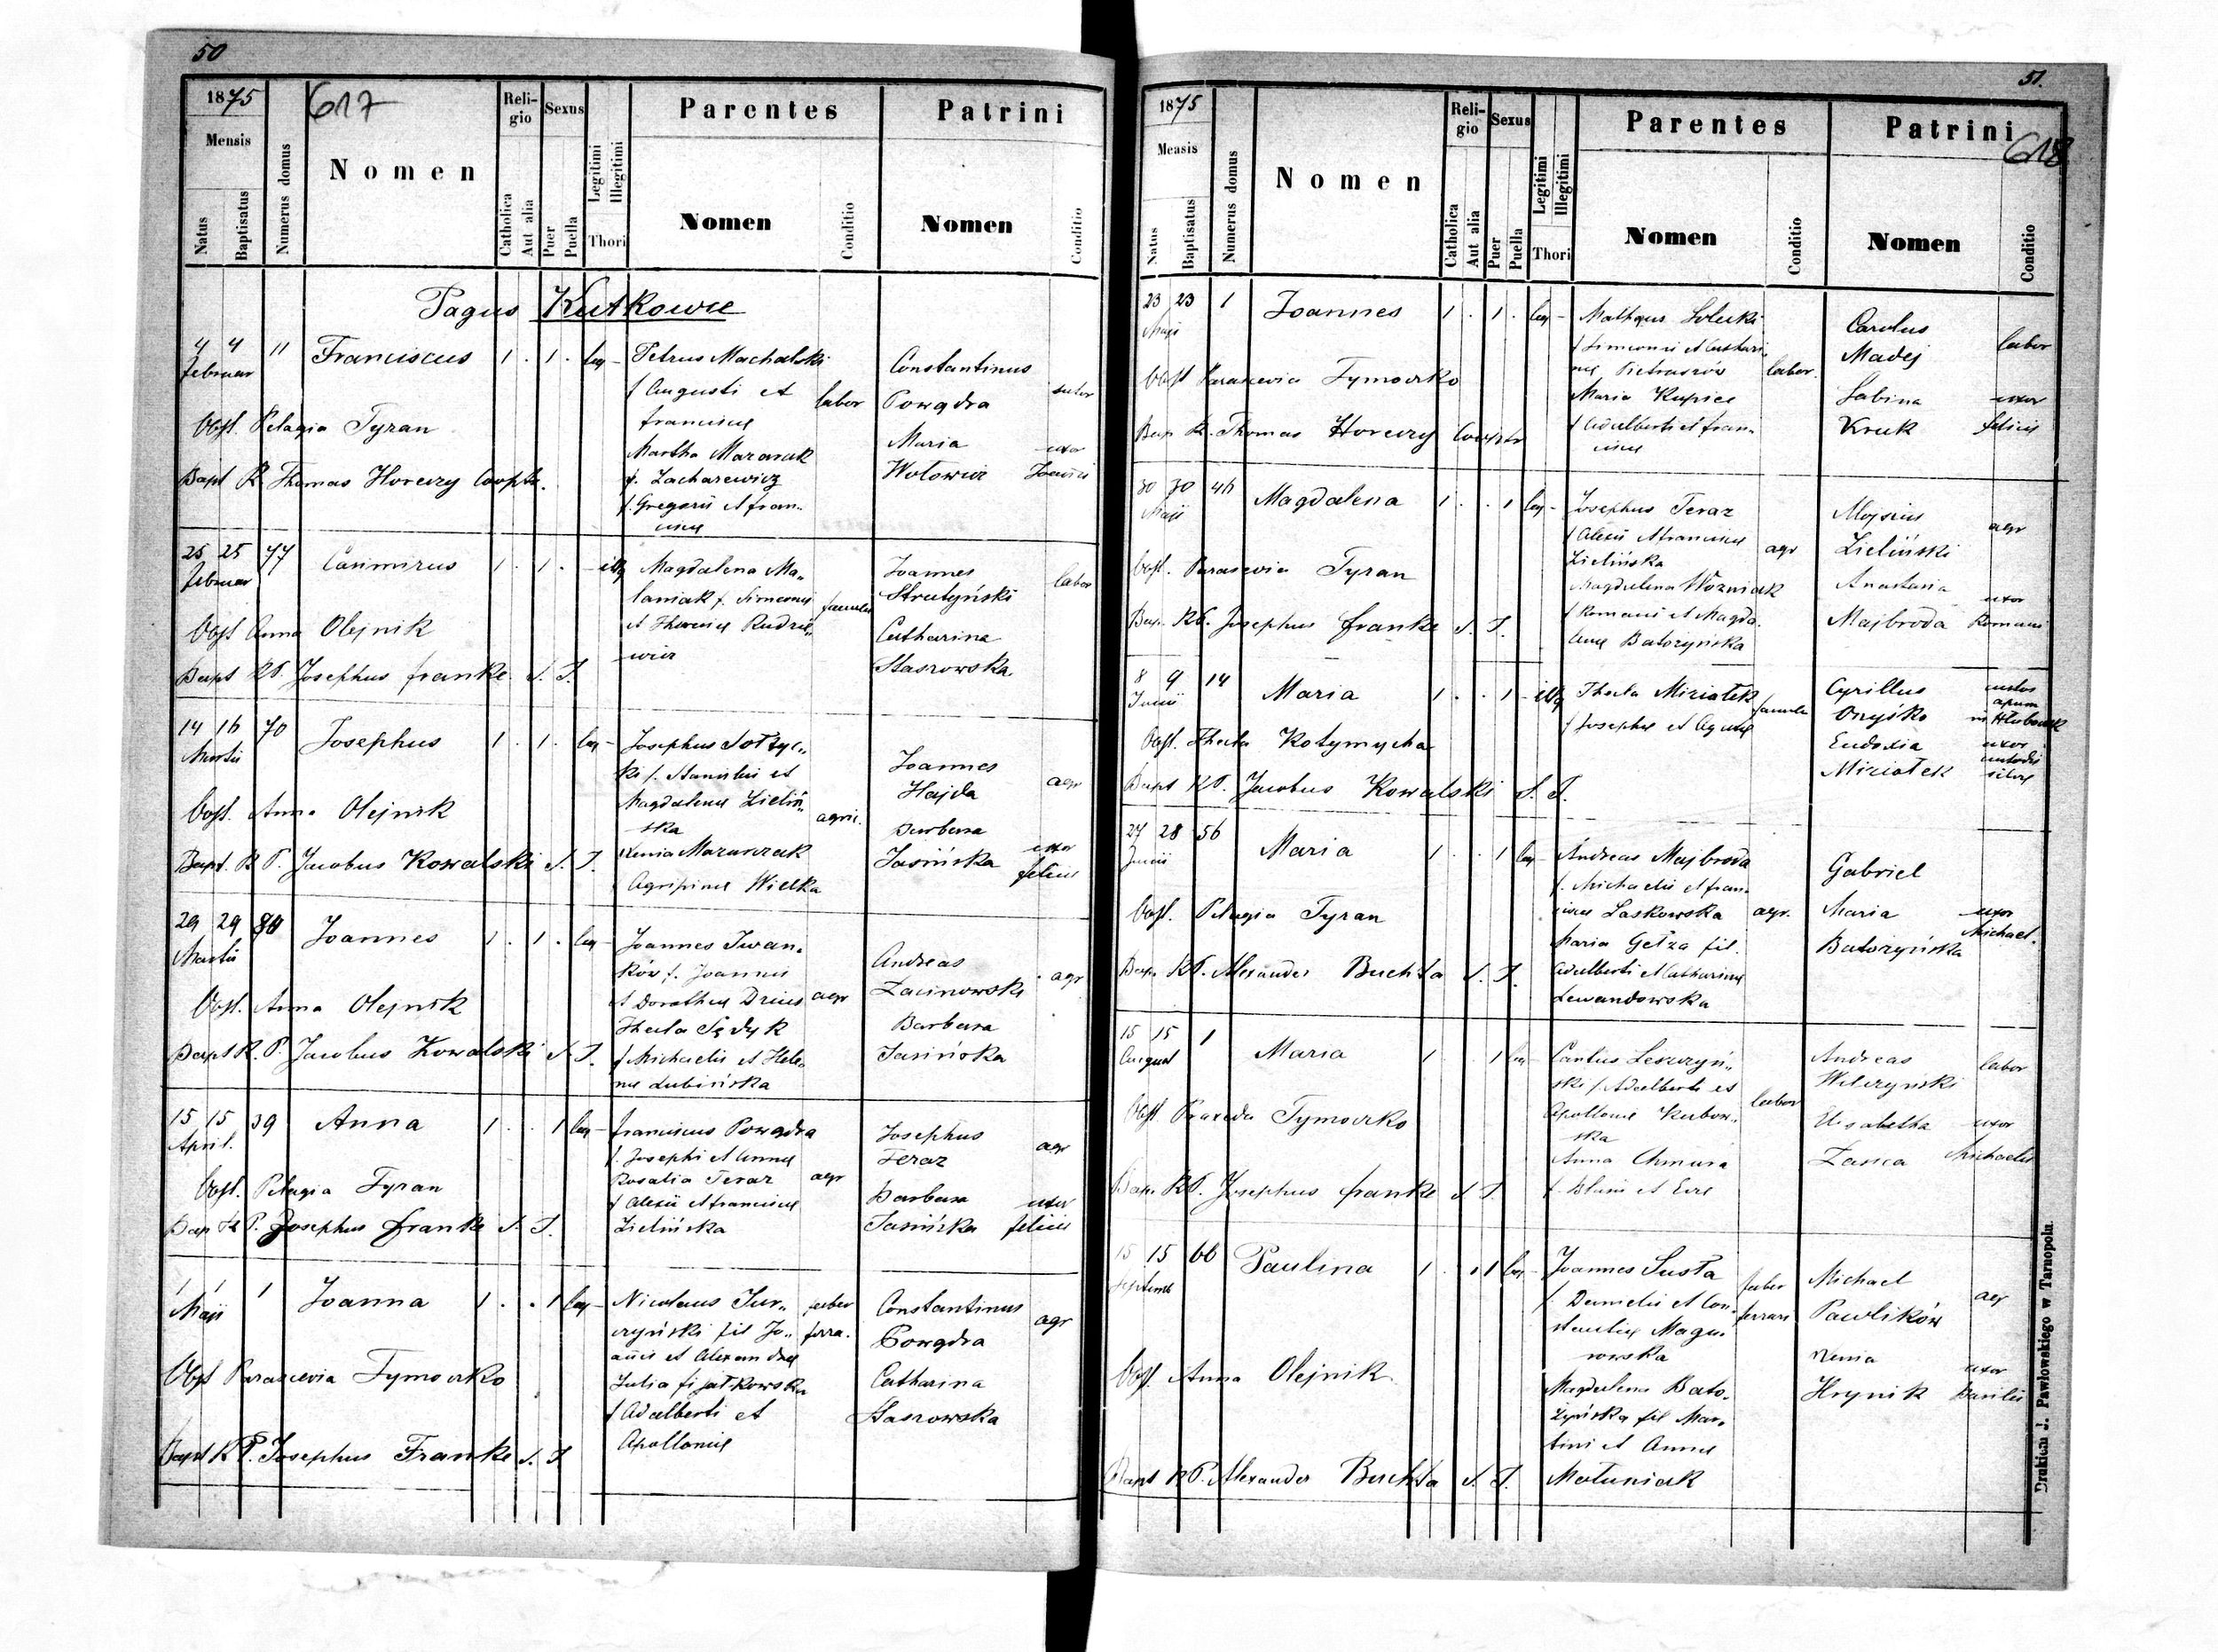 50
1875
617
Mensis
Natus
Baptisatus
Numerus domus
Nomen
Religio
Catholica
Aut alia
Sexus
Puer
Puella
Legitimi
Illegitimi
Thori
Parentes
Nomen
Conditio
Patrini
Nomen
Conditio
Pagus Kutkowce
4 4 11 Franciscus 1 . 1 . leg -
Februar
Petrus Machalski
f Augusti et
Franciscae
Martha Mazarak
f. Zacharewicz
f. Gregorii et Fran-
ciscae
labor
Constantinus
Powądra
sutor
Maria
uxor
Wołowicz Joannis
Obst. Pelagia Tyran
Bapt R. Thomas Horeczy Cooptr.
25 25 77 Casimirus 1 . 1 . - illg
Februar
Magdalena Ma-
laniak f. Simeonis
et Theresiae Rudzie-
wicz
famula
Joannes
Strutyński
labor
Catharina
Staszowska
Obst Anna Olejnik
Bapt RP. Josephus Franke S. J.
14 16 70 Josephus 1 . 1 . leg -
Martii
Josephus Sołtyc-
ki f. Stanislai et
Magdalenae Zieliń-
ska
Xenia Mazurczak
Agripinae Wilka
agric.
Joannes
Hajda
agr
Barbara
uxor
Jasińska Felicis
Obst. Anna Olejnik
Bapt. R P. Jacobus Kowalski S. J.
29 29 80 Joannes 1 . 1 . leg -
Martii
Joannes Iwan-
ków f. Joannis
et Dorotheae Dzius
Thecla Sędyk
f Michaelis et Hele-
nae Lubińska
agr
Andreas
Zacinowski
agr
Barbara
Jasińska
Obst. Anna Olejnik
Bapt R. P. Jacobus Kowalski S. J.
15 15 39 Anna 1 . . 1 leg -
April.
Franciscus Powądra
f. Josephi et Annae
Rosalia Teraz
f Alexii et Franciscae
Zielińska
agr
Josephus
Teraz
agr
Barbara
uxor
Jasińska Felicis
Obst. Pelagia Tyran
Bap R P. Josephus Franke S. J.
1 1 1 Joanna 1 . . 1 leg -
Maji
Nicolaus Jur-
czyński fil Jo-
annis et Alexandrae
Julia Fijatkowska
f Adalberti et
Apolloniae
faber
ferra.
Constantinus
Powądra
agr
Catharina
Staszowska
Obst Parascevia Tymoczko
Bapt R P. Josephus Franke S. J
51.
1875
618
Measis
Natus
Baptisatus
Numerus domus
Nomen
Religio
Catholica
Aut alia
Sexus
Puer
Puella
Legitimi
Illegitimi
Thori
Parentes
Nomen
Conditio
Patrini
Nomen
Conditio
23 23 1 Joannes 1 . 1 . leg -
Maji
Matheus Solecki
f Simeonis et Cathari-
nae Pietraszów
Maria Kupiec
f Adalberti et Fran-
ciscae
labor.
Carolus
Madej
labor
Sabina uxor
Kruk Felicis
Obst Parascevia Tymoczko
Bap. R. Thomas Horeczy Cooptr
30 30 46 Magdalena 1 . . 1 leg -
Maji
Josephus Teraz
f Alexii et Franciscae
Zielińska
Magdalena Wozniak
f Romani et Magda-
lenae Batożyńska
agr
Aloysius
Zieliński
agr
Anastasia
uxor
Majbroda Romani
Obst. Parascevia Tyran
Bap. RP. Josephus Franke S. J.
8 9 14 Maria 1 . . 1 - illg
Junii
Thecla Miziołek
f Josephi et Agnetis
famula
Cyrillus
Onyśko
custos
apum
in Hłuboczek
Eudoxia
Miziołek
uxor
custodis
silvae
Obst. Thecla Kotymycha
Bapt RP. Jacobus Kowalski S. J.
27 28 56 Maria 1 . . 1 leg -
Junii
Andreas Majbroda
f. Michaelis et Fran-
ciscae Laskowska
Maria Gełza fil.
Adalberti et Catharinae
Lewandowska
agr.
Gabriel
Maria uxor
Michael.
Batożyńska
Obst. Pelagia Tyran
Bap. RP. Alexander Buchta S. J.
15 15 1 Maria 1 . . 1 leg
August
Cantus Leszczyń-
ski f. Adalberti et
Apolloniae Kubow-
ska
Anna Chmura
f. Blasii et Evae
labor
Andreas
Wilczyński
labor
Elisabetha uxor
Zasica Michaelis
Obst. Praxeda Tymoczko
Bap. RP. Josephus Franke S J.
15 15 66 Paulina 1 . . 1 leg -
Septemb
Joannes Susta
f. Danielis et Con-
stantiae Magu-
rowska
Magdalena Bato-
żyńska fil Mar-
tini et Annae
Matuniak
faber
ferrari
Michael
Pawlików
agr
Xenia
uxor
Hrynik Basilii
Obst. Anna Olejnik
Bapt RP. Alexander Buchta S. J.
Drukiem J. Pawłowskiego w Tarnopolu.